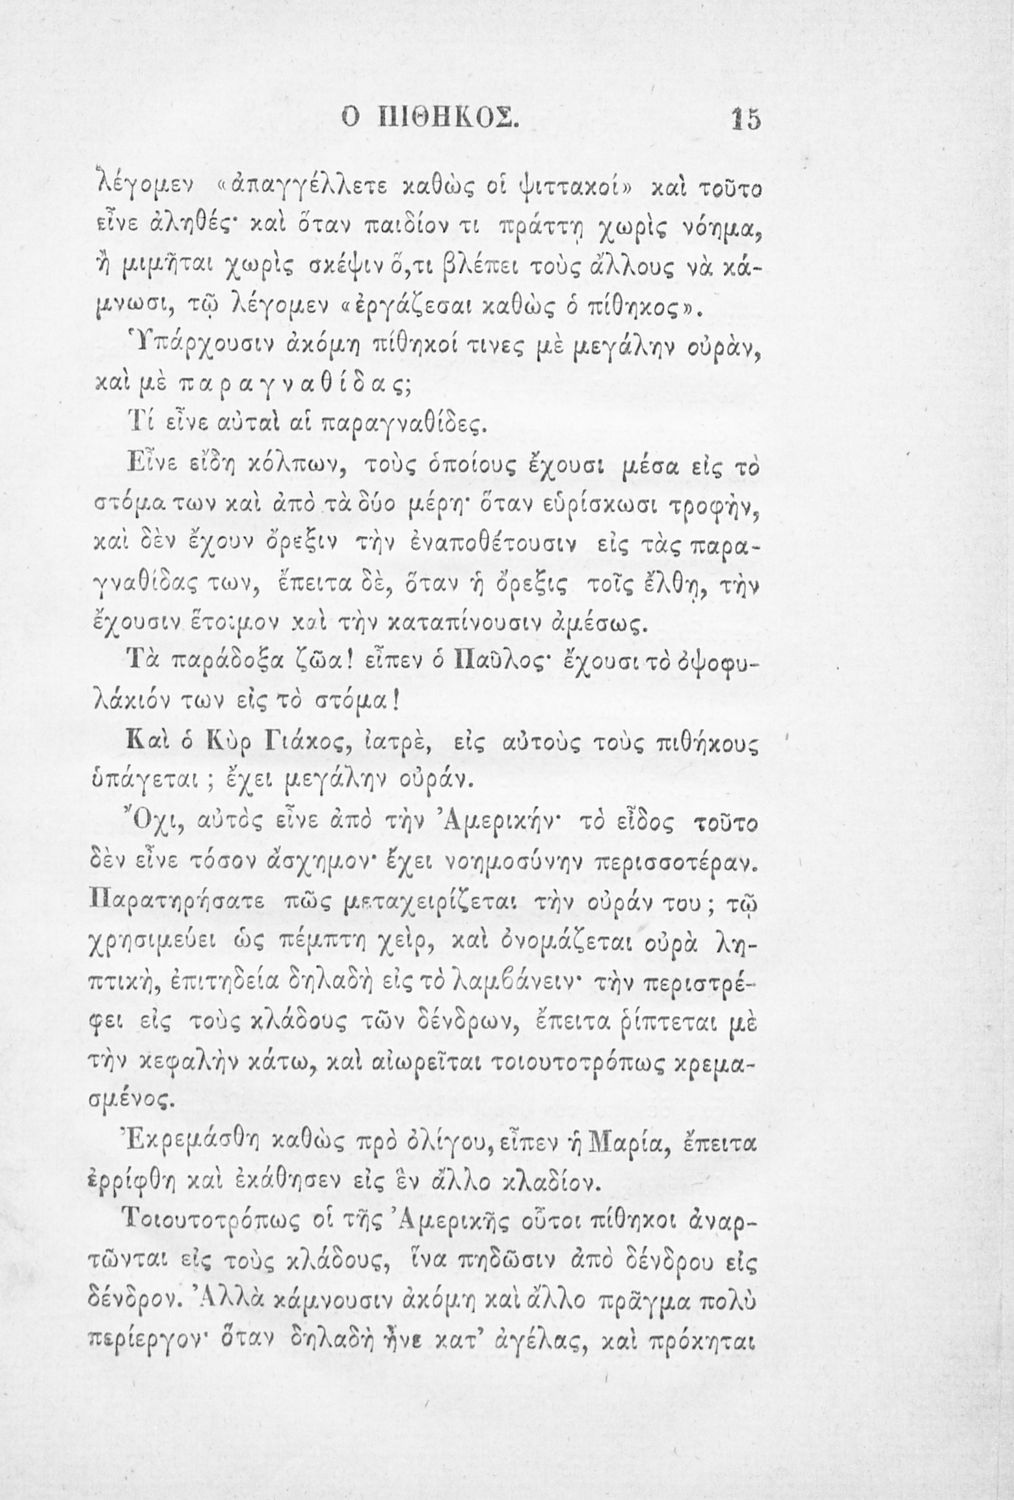 Ο ΠΙΘΗΚΟΣ. 15
λέγομεν «ἀπαγγέλλετε καθὼς οἱ ψιττακοί» καὶ τοῦτο
εἶνε ἀληθές· καὶ ὅταν παιδίον τι πράττῃ χωρὶς νόημα,
ἢ μιμῆται χωρὶς σκέψιν ὅ,τι βλέπει τοὺς ἄλλους νὰ κά-
μνωσι, τῷ λέγομεν «ἐργάζεσαι καθὼς ὁ πίθηκος».
Ὑπάρχουσιν ἀκόμη πίθηκοί τινες μὲ μεγάλην οὐρὰν,
καὶ μὲ παραγναθίδας;
Τί εἶνε αὐταὶ αἱ παραγναθίδες.
Εἶνε εἴδη κόλπων, τοὺς ὁποίους ἔχουσι μέσα εἰς τὸ
στόμα των καὶ ἀπὸ τὰ δύο μέρη· ὅταν εὑρίσκωσι τροφὴν,
καὶ δὲν ἔχουν ὄρεξιν τὴν ἐναποθέτουσιν εἰς τὰς παρα-
γναθίδας των, ἔπειτα δὲ, ὅταν ἡ ὄρεξις τοῖς ἔλθῃ, τὴν
ἔχουσιν ἕτοιμον καὶ τὴν καταπίνουσιν ἀμέσως.
Τὰ παράδοξα ζῶα! εἶπεν ὁ Παῦλος· ἔχουσι τὸ ὀψοφυ-
λάκιόν των εἰς τὸ στόμα!
Καὶ ὁ Κὺρ Γιάκος, ἰατρὲ, εἰς αὐτοὺς τοὺς πιθήκους
ὑπάγεται ; ἔχει μεγάλην οὐράν.
Ὄχι, αὐτὸς εἶνε ἀπὸ τὴν Ἀμερικήν· τὸ εἶδος τοῦτο
δὲν εἶνε τόσον ἄσχημον· ἔχει νοημοσύνην περισσοτέραν.
Παρατηρήσατε πῶς μεταχειρίζεται τὴν οὐράν του ; τῷ
χρησιμεύει ὡς πέμπτη χεὶρ, καὶ ὀνομάζεται οὐρὰ λη-
πτικὴ, ἐπιτηδεία δηλαδὴ εἰς τὸ λαμβάνειν· τὴν περιστρέ-
φει εἰς τοὺς κλάδους τῶν δένδρων, ἔπειτα ῥίπτεται μὲ
τὴν κεφαλὴν κάτω, καὶ αἰωρεῖται τοιουτοτρόπως κρεμα-
σμένος.
Ἐκρεμάσθη καθὼς πρὸ ὀλίγου, εἶπεν ἡ Μαρία, ἔπειτα
ἐρρίφθη καὶ ἐκάθησεν εἰς ἓν ἄλλο κλαδίον.
Τοιουτοτρόπως οἱ τῆς Ἀμερικῆς οὗτοι πίθηκοι ἀναρ-
τῶνται εἰς τοὺς κλάδους, ἵνα πηδῶσιν ἀπὸ δένδρου εἰς
δένδρον. Ἀλλὰ κάμνουσιν ἀκόμη καὶ ἄλλο πρᾶγμα πολὺ
περίεργον· ὅταν δηλαδὴ ἦνε κατ’ ἀγέλας, καὶ πρόκηται